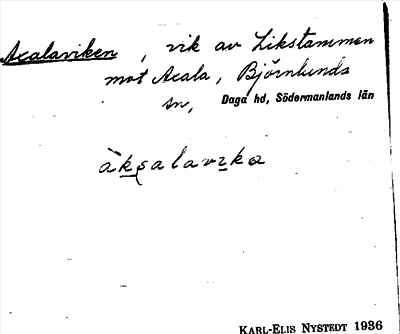 Axalaviken, vik av Likstammen
mot Axala, Björnlunda
sn, Daga hd, Södermanlands län
àksalavıka
KARL-ELIS NYSTEDT 1936